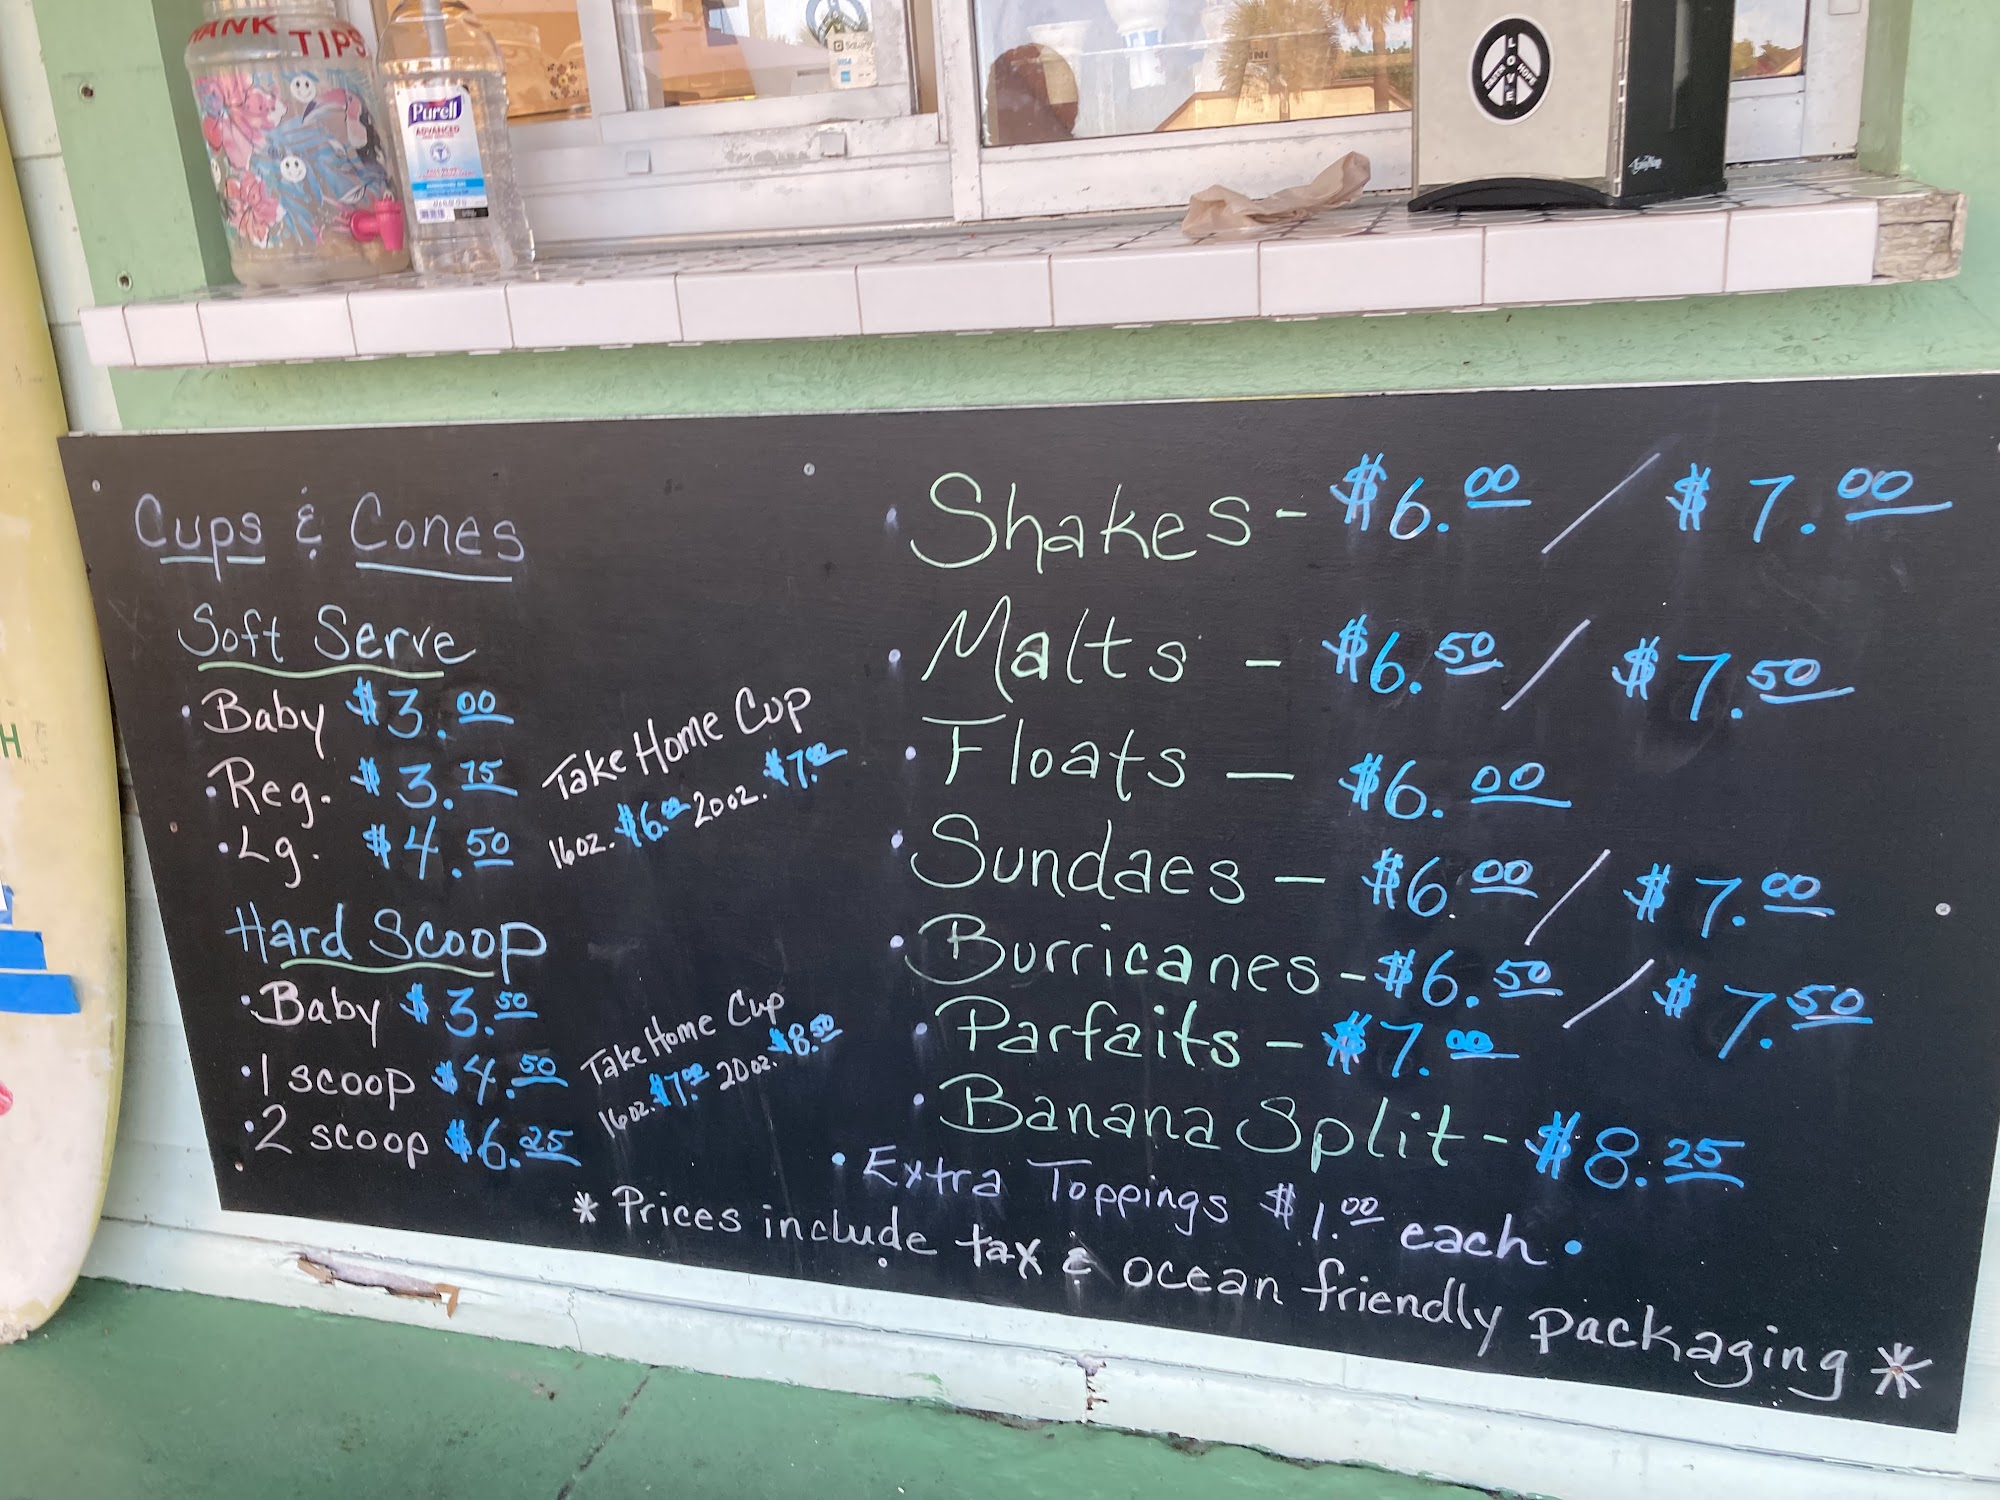 THANK TIPS
Purell
ADVANCED
LOVE
FAITH HOPE
Cups & Cones
Soft Serve
• Baby $3.00
• Reg. $3.75
• Lg. $4.50
Take Home Cup
16oz. $6.00 20oz. $7.00
Hard Scoop
• Baby $3.50
• 1 scoop $4.50
• 2 scoop $6.25
Take Home Cup
16oz. $7.00 20oz. $8.50
• Shakes - $6.00 / $7.00
• Malts - $6.50 / $7.50
• Floats - $6.00
• Sundaes - $6.00 / $7.00
• Burricanes - $6.50 / $7.50
• Parfaits - $7.00
• Banana Split - $8.25
• Extra Toppings $1.00 each •
* Prices include tax & ocean friendly packaging *
H